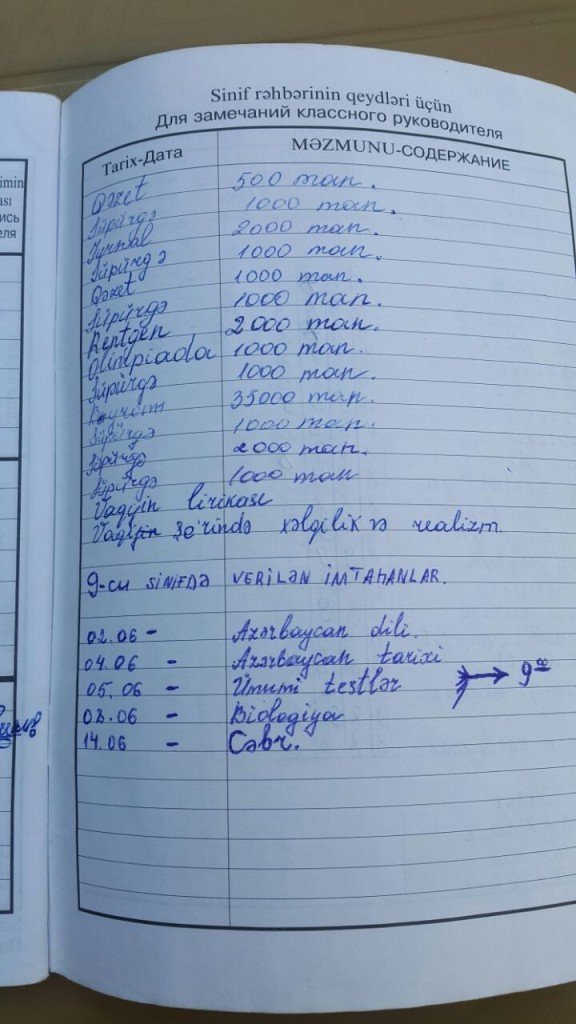 Sinif rəhbərinin qeydləri üçün
Для замечаний классного руководителя
Tarix-Дата MƏZMUNU-СОДЕРЖАНИЕ
Qəzet 500 man.
Süpürgə 1000 man.
Jurnal 2000 man.
Süpürgə 1000 man.
Qəzet 1000 man.
Süpürgə 1000 man.
Rentgen 2000 man.
Olimpiada 1000 man.
Süpürgə 1000 man.
Bayram 35000 man.
Süpürgə 1000 man.
Süpürgə 2000 man.
Süpürgə 1000 man
Vaqifin lirikası
Vaqifin şe'rində xəlqilik və realizm.
9-cu SINIFDƏ VERILƏN IMTAHANLAR.
02.06 - Azərbaycan dili.
04.06 - Azərbaycan tarixi
05.06 - Ümumi testlər → 9
08.06 - Biologiya
14.06 - Cəbr.